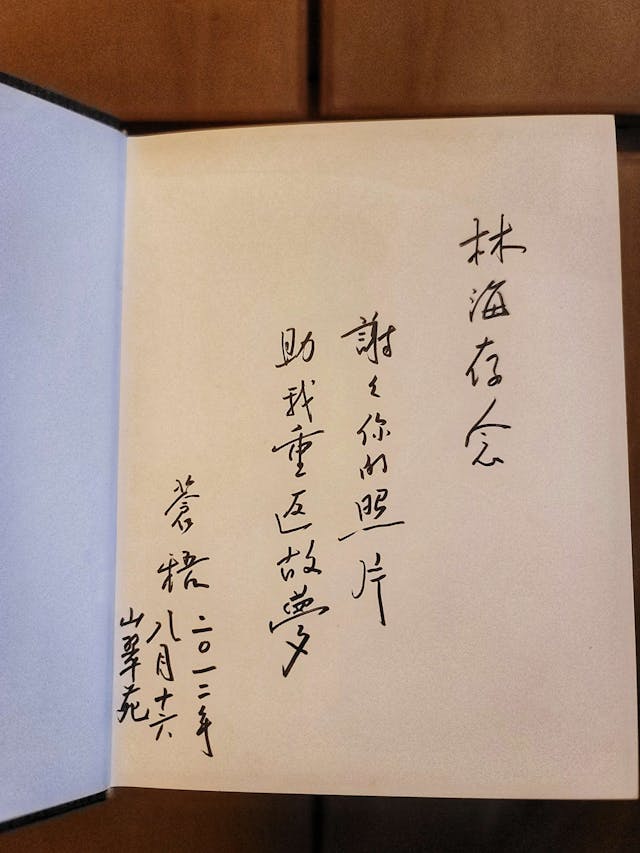 林海存念
謝々你的照片
助我重返故夢
蒼梧
二〇一二年
八月十六
山翠苑